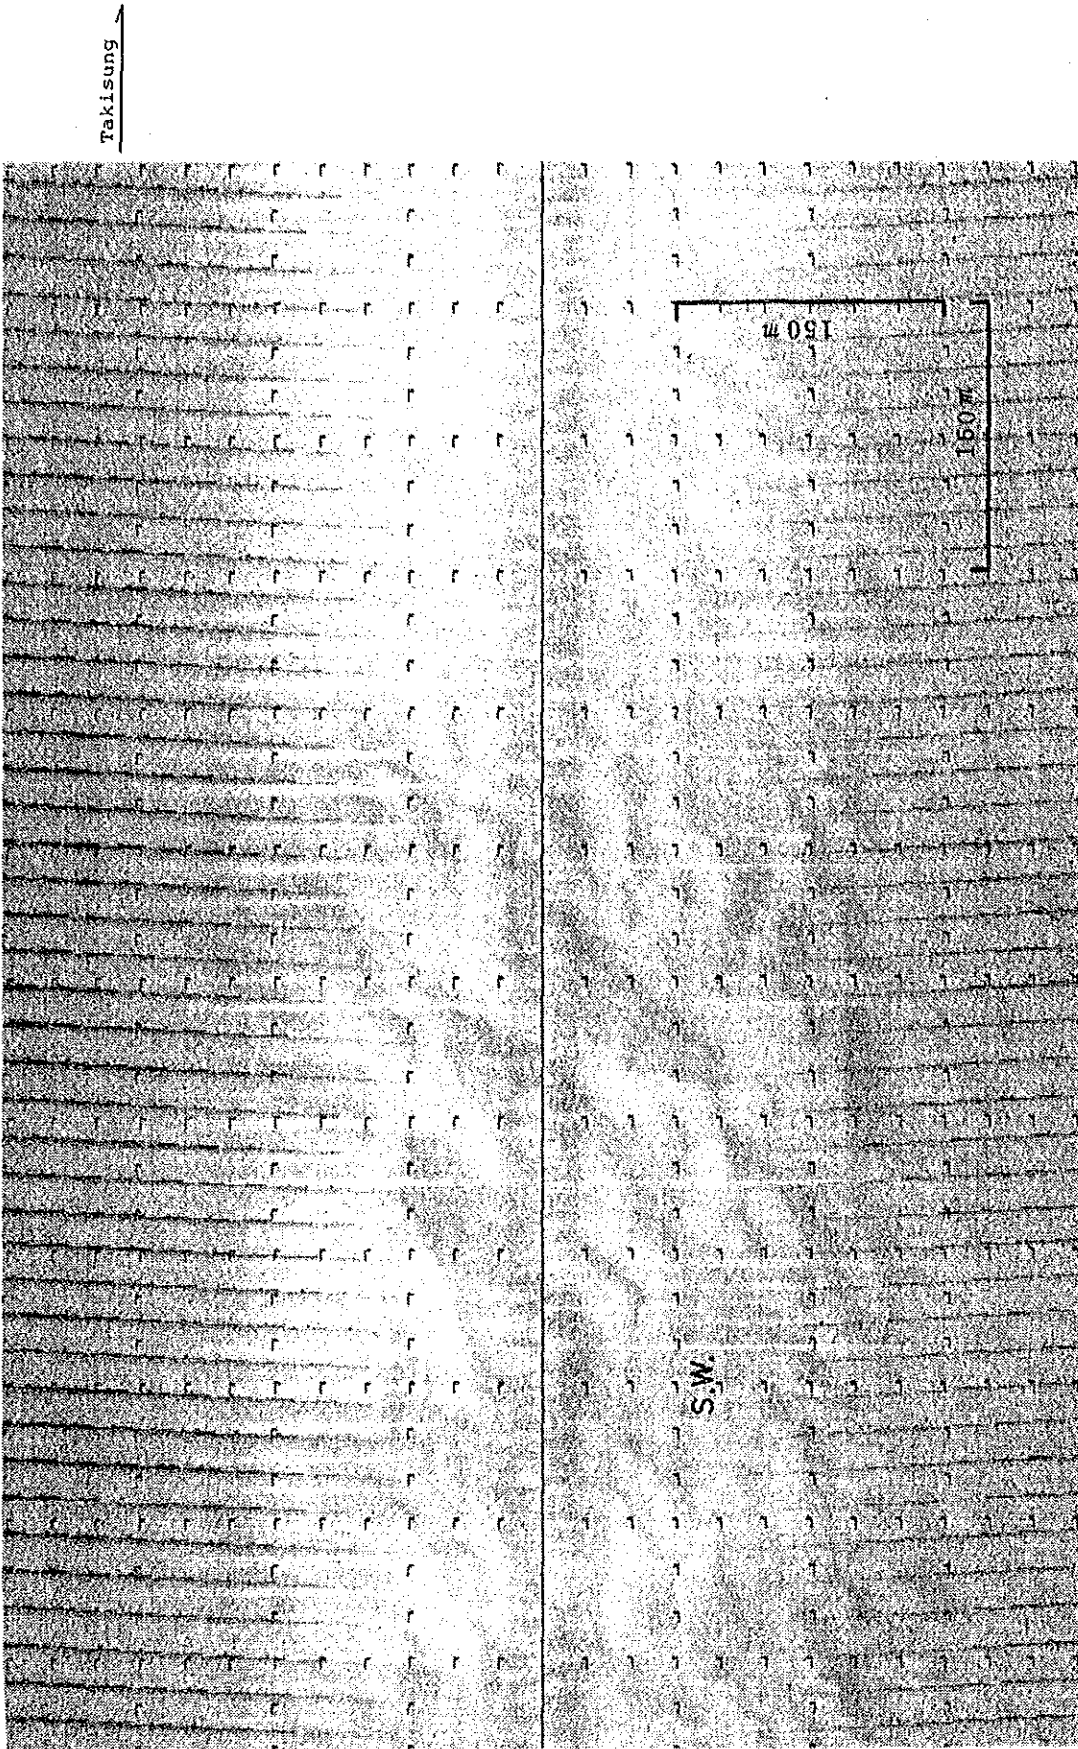 Takisung
150 m
150 m
S.W.